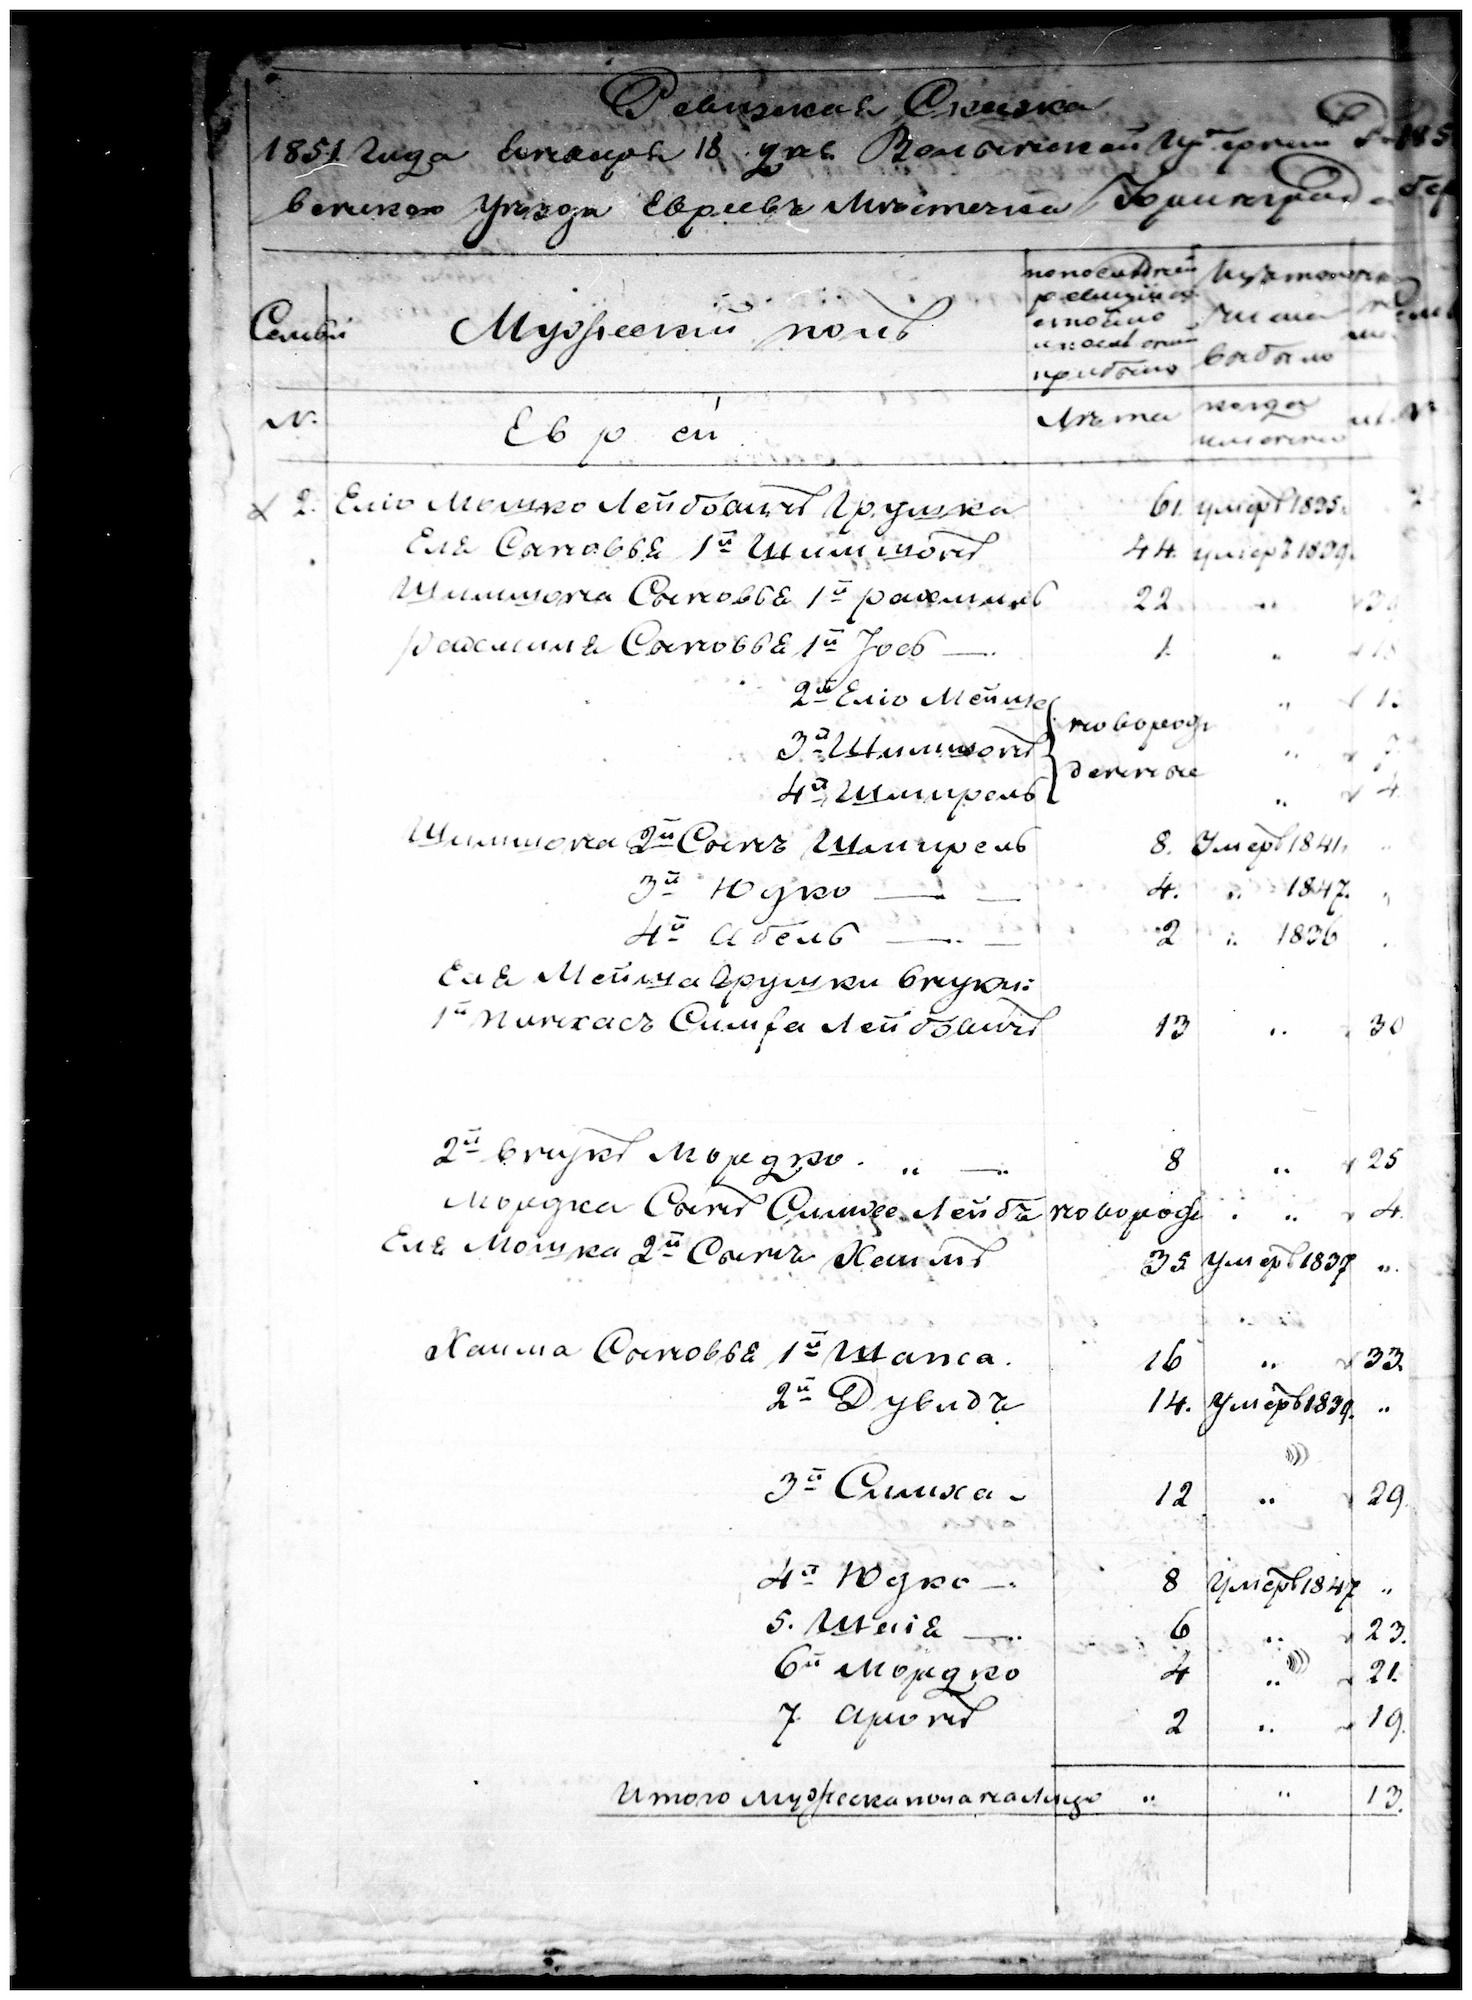 Ревизская Сказка
1851 Года Января 18 дня Волынской Губернии
венского Уезда Евреевъ Местечка
Семьи
Мужеский полъ
по последней ревизии состояло и после оной прибыло
Изъ того числа выбыло
№
Еврей
Лета
когда именно
2. Еліо Мошко Лейбовичъ Грушка 61. умеръ 1835.
Еля Сыновья 1й Шимшонъ 44. умеръ 1839.
Шимшона Сыновья 1й рахмиль 22 "
рахмиля Сыновья 1й Іось — 1. "
2й Еліо Мейша "
3й Шимшонъ "
новорож
денные
4й Шмирель " 4.
Шимшона 2й Сынъ Шмирель 8. Умеръ 1841. "
3й Юдко — — 4. " 1847. "
4й Абель — — 2 " 1836
Еля Мейша Грушки внуки:
1й Пинхасъ Симха Лейбовичъ 13 " 30
2й внукъ Мордко. " — 8 " 25
Мордка Сынъ Симхе Лейбъ новорож " 4.
Еля Мошка 2й Сынъ Хаимъ 35 Умеръ 1837 "
Хаима Сыновья 1й Шапса. 16 " 33.
2й Дувидъ 14. Умеръ 1839. "
3й Симха - 12 " 29.
4й Юдко — 8 Умеръ 1847 "
5. Шаія — 6 " 23.
6й Мордко 4 " 21.
7. Аронъ 2 " 19.
Итого мужеска пола налицо " " 13.